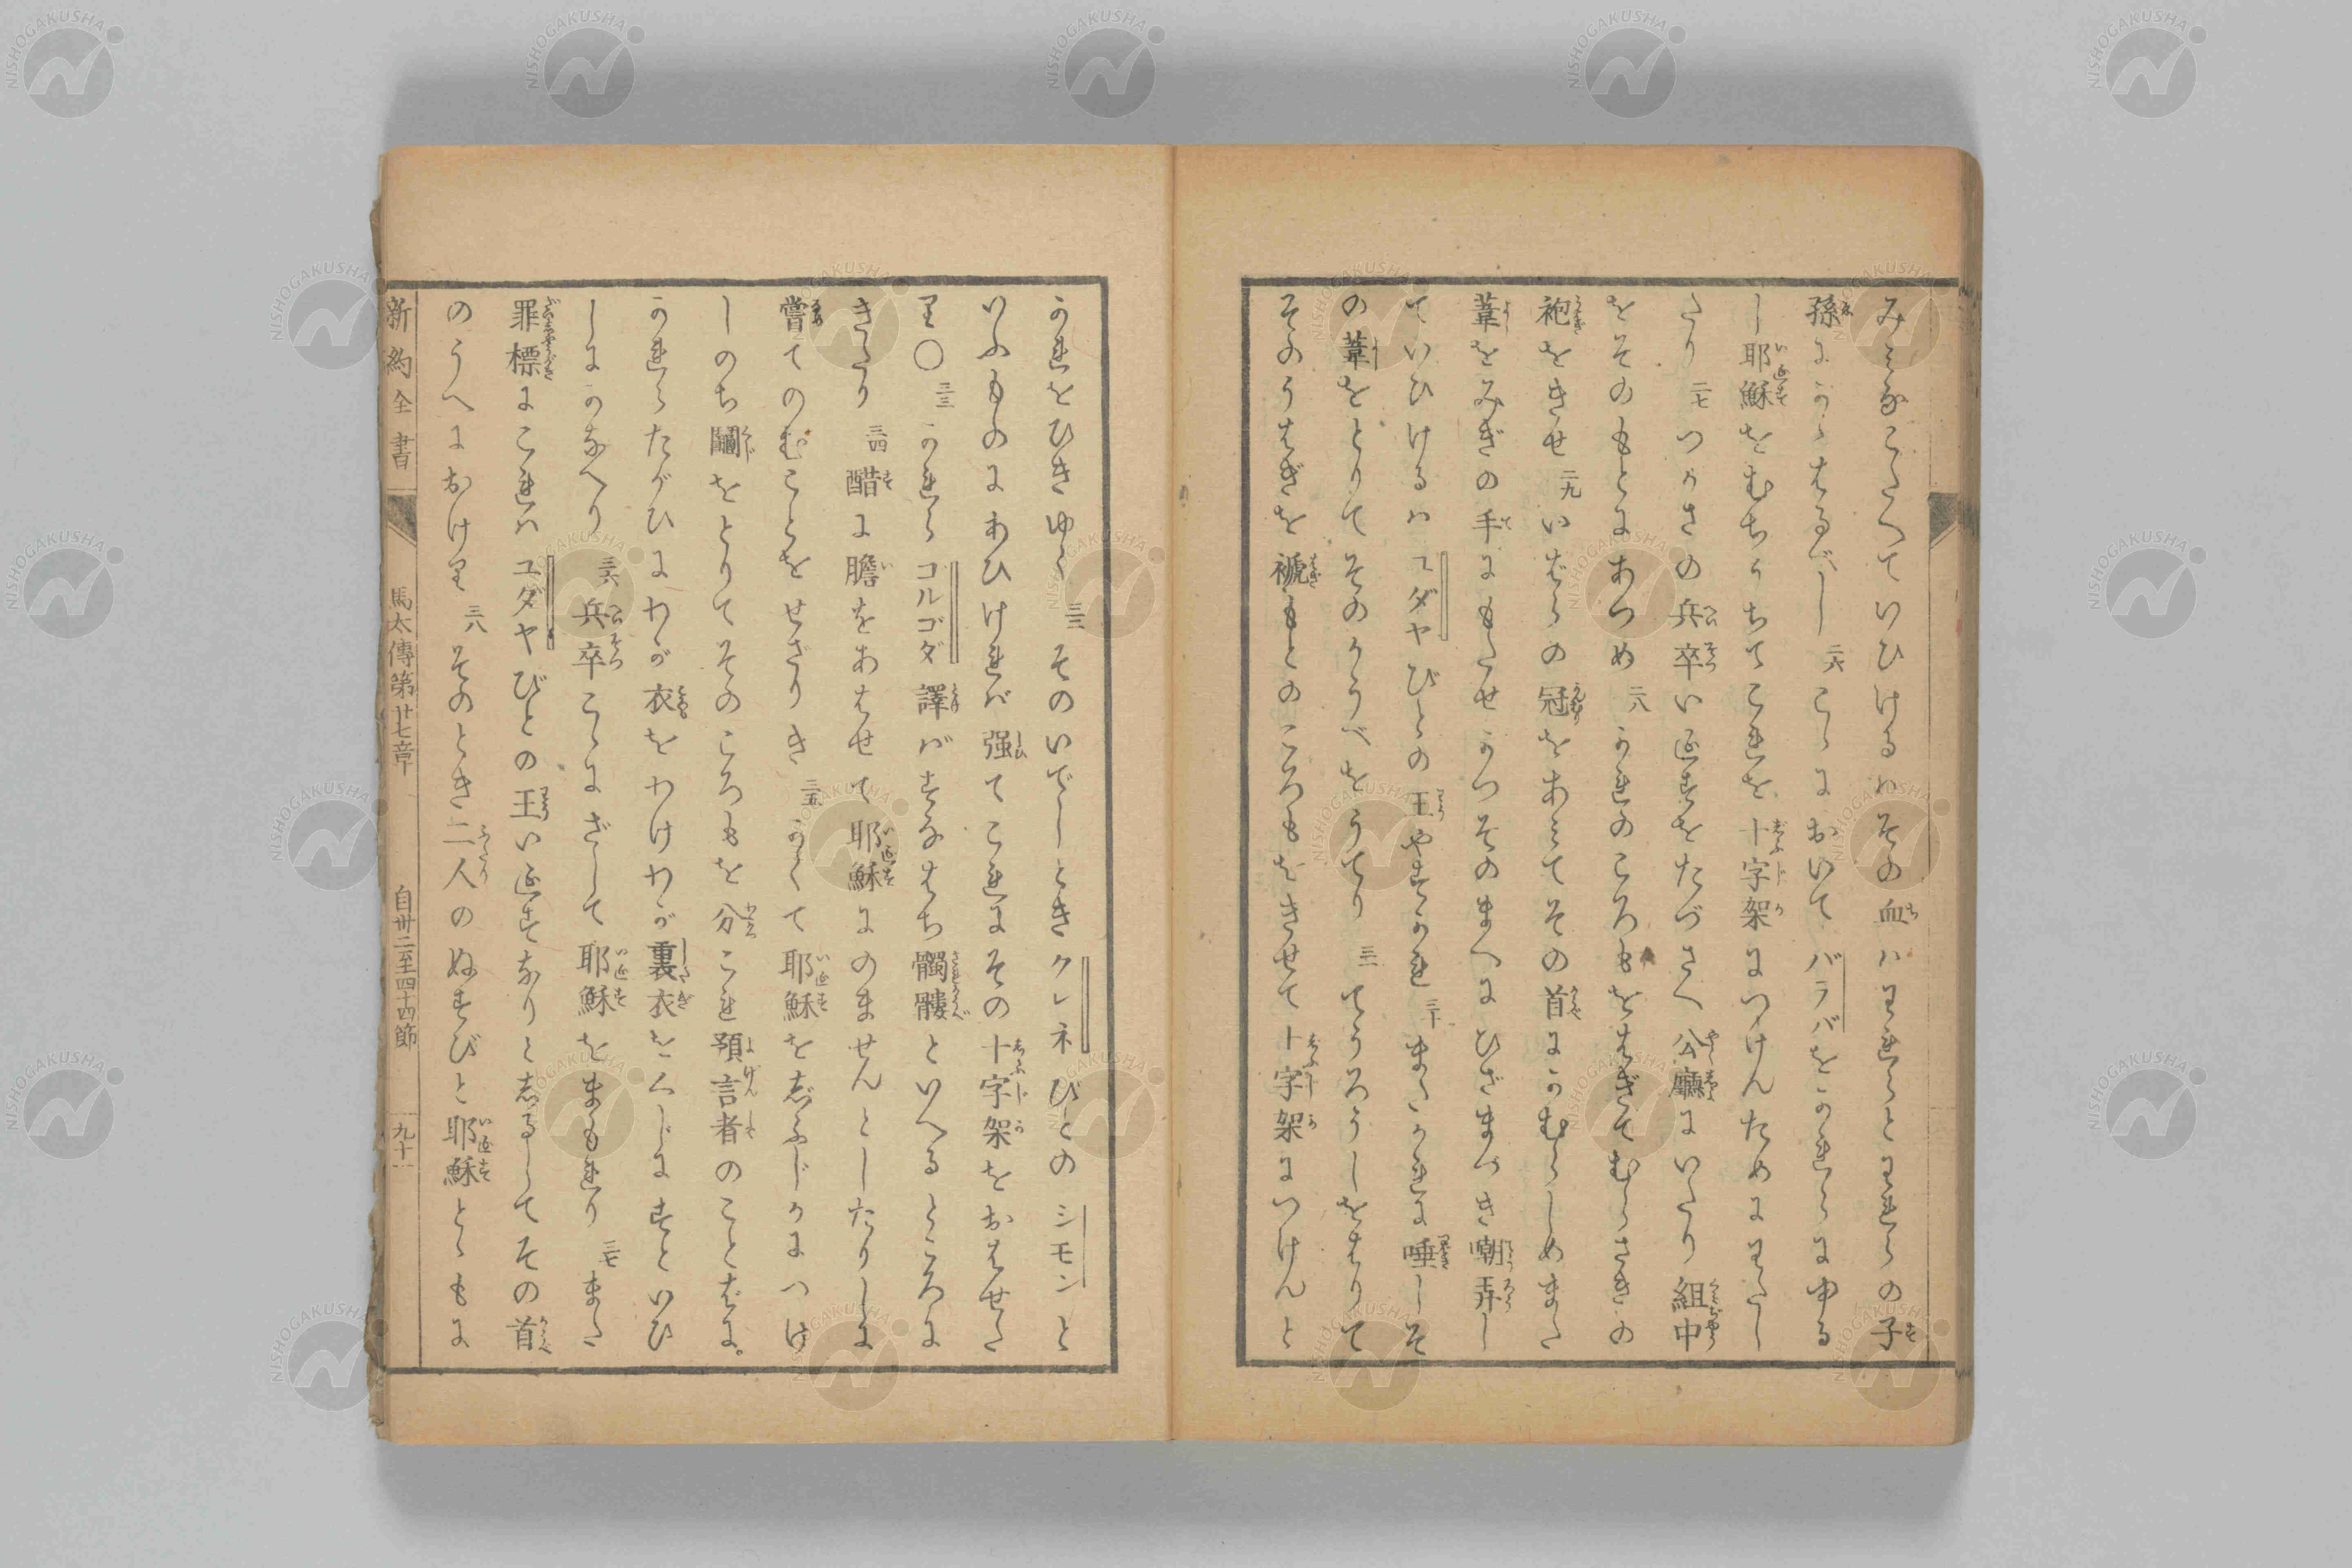 みみなこたへていひけるハその血ハわれらとわれらの子
孫にかゝるべし 二六 こゝにおいてバラバをかれらにゆる
し耶穌をむちうちてこれを十字架につけんためにわたし
たり 二七 つかさの兵卒いゑすをたづさへ公廳にいたり組中
をそのもとにあつめ 二八 かれのころもをはぎてむらさきの
袍をきせ 二九 いばらの冠をあみてその首にかむらしめまた
葦をみぎの手にもたせかつそのまへにひざまづき嘲弄し
ていひけるハユダヤびとの王やすかれ 三十 またかれに唾しそ
の葦をとりてそのかうべをうてり 三一 てうろうしをはりて
そのうはぎを褫もとのころもをきせて十字架につけんと
かれをひきゆく 三二 そのいでしときクレネびとのシモンと
いふものにあひけれバ强てこれにその十字架をおはせた
り○ 三三 かれらゴルゴダ譯バすなはち髑髏といへるところに
きたり 三四 醋に膽をあはせて耶穌にのませんとしたりしに
嘗てのむことをせざりき 三五 かくて耶穌を志ふじかにつけ
しのち鬮をとりてそのころもを分これ預言者のことばに。
かれらたがひにわが衣をわけわが裏衣をくじにすといひ
しにかなへり 三六 兵卒こゝにざして耶穌をまもれり 三七 また
罪標にこれハユダヤびとの王い ゑすなりと志るしてその首
のうへにおけり 三八 そのとき二人のぬすびと耶穌とゝもに
新約全書 馬太傳第廿七章 自卅二至四十四節 九十一